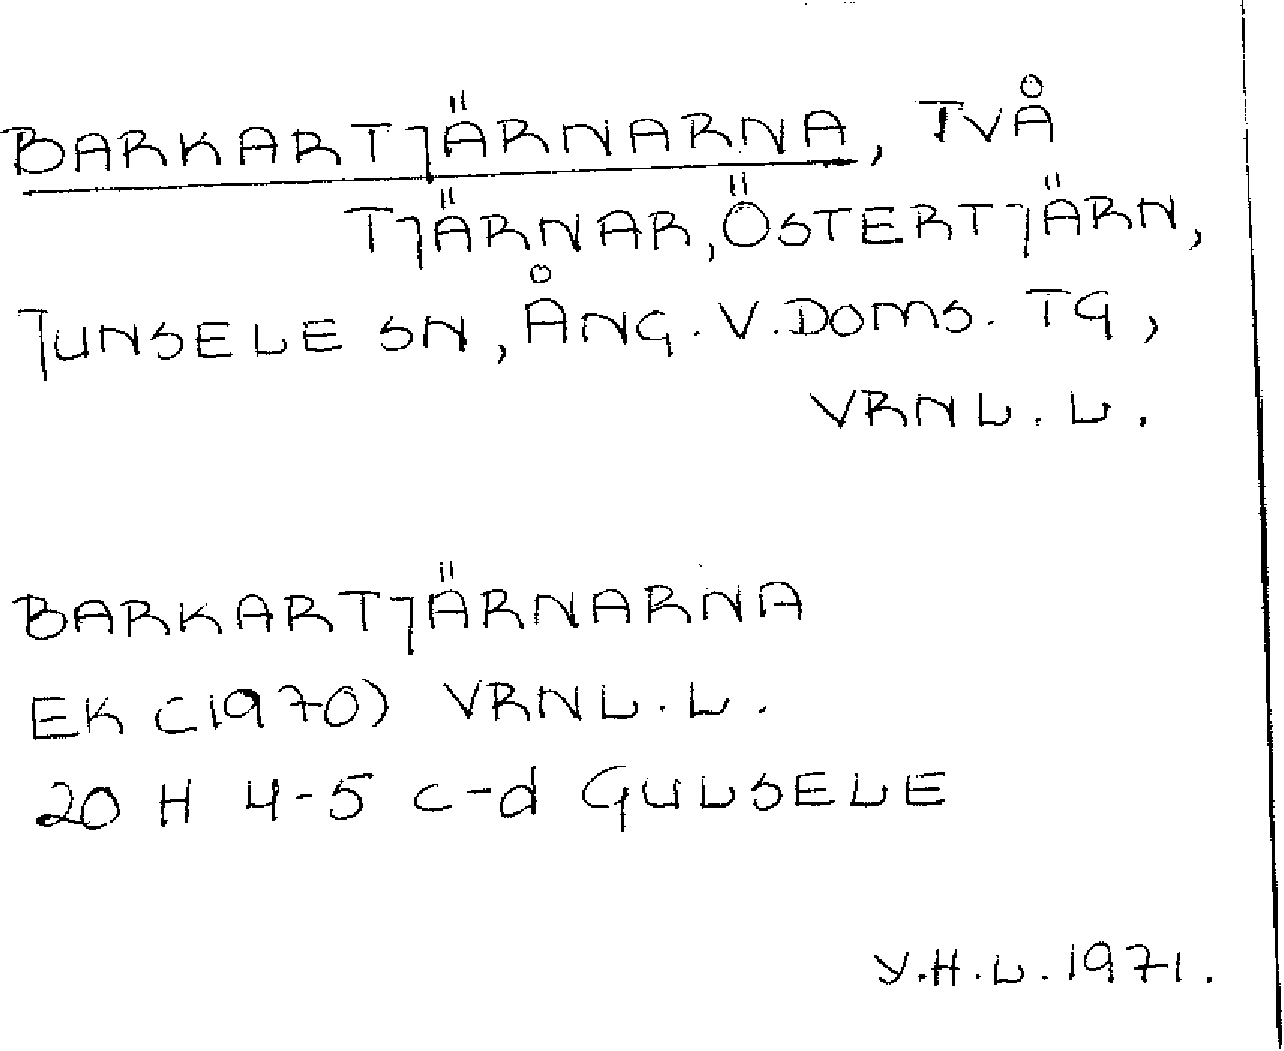 BARKARTJÄRNARNA, TVÅ
TJÄRNAR, ÖSTERTJÄRN,
JUNSELE SN, ÅNG. V. DOMS. TG,
VRNL. L.
BARKARTJÄRNARNA
EK (1970) VRNL. L.
20 H 4-5 c-d GULSELE
Y.H.L. 1971.